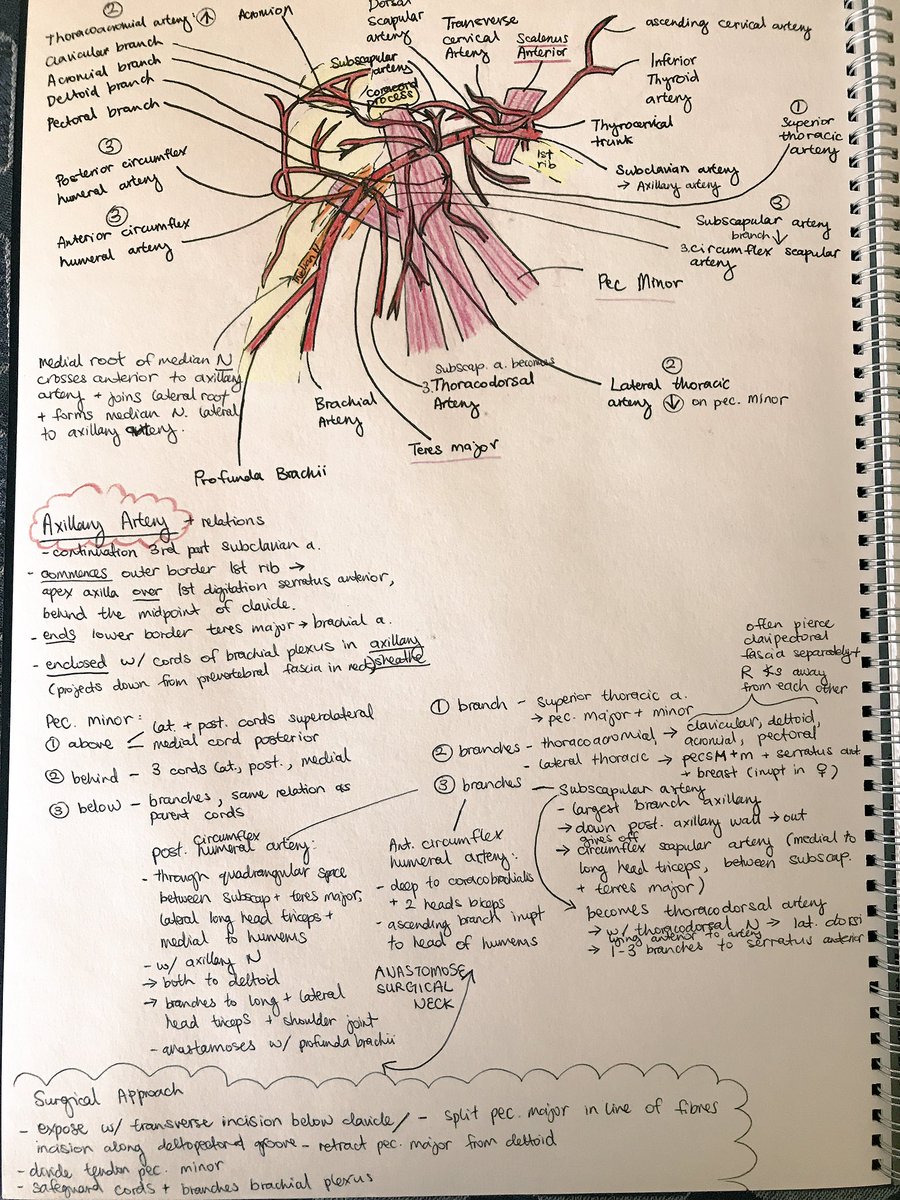 ②
Thoracoacromial artery: ↑
Clavicular branch
Acromial branch
Deltoid branch
Pectoral branch
Acromion
Dorsal
Scapular
artery
Transverse
cervical
Artery
Scalenus
Anterior
ascending cervical artery
Inferior
Thyroid
artery
Subscapular
artery
coracoid
process
1st
rib
Thyrocervical
trunk
①
Superior
thoracic
artery
Subclavian artery
→ Axillary artery
③
Posterior circumflex
humeral artery
③
Anterior circumflex
humeral artery
③
Subscapular artery
branch ↓
3. circumflex scapular
artery
Pec Minor
median N
medial root of median N
crosses anterior to axillary
artery + joins lateral root
+ forms median N. lateral
to axillary artery.
Brachial
Artery
Subscap. a. becomes
3. Thoracodorsal
Artery
②
Lateral thoracic
artery ↓ on pec. minor
Teres major
Profunda Brachii
Axillary Artery + relations
- continuation 3rd part subclavian a.
- commences outer border 1st rib →
apex axilla over 1st digitation serratus anterior,
behind the midpoint of clavicle.
- ends lower border teres major → brachial a.
- enclosed w/ cords of brachial plexus in axillary
(projects down from prevertebral fascia in neck) sheathe
Pec. minor:
① above - lat + post. cords superolateral
- medial cord posterior
② behind - 3 cords lat., post., medial
③ below - branches, same relation as
parent cords
often pierce
clavipectoral
fascia separately +
R ∡s away
from each other
① branch - superior thoracic a.
→ pec. major + minor
② branches - thoracoacromial → clavicular, deltoid,
acromial, pectoral
- lateral thoracic → pecs M+m + serratus ant
+ breast (impt in ♀)
③ branches - Subscapular artery
- largest branch axillary
→ down post. axillary wall → out
gives off
→ circumflex scapular artery (medial to
long head triceps, between subscap.
+ terres major)
becomes thoracodorsal artery
→ w/ thoracodorsal N → lat. dorsi
lying anterior to artery
→ 1-3 branches to serratus anterior
post. circumflex
humeral artery:
- through quadrangular space
between subscap + teres major,
lateral long head triceps +
medial to humerus
- w/ axillary N
→ both to deltoid
→ branches to long + lateral
head triceps + shoulder joint
- anastamoses w/ profunda brachii
Ant. circumflex
humeral artery:
- deep to coracobrachialis
+ 2 heads biceps
- ascending branch impt
to head of humerus
ANASTOMOSE
SURGICAL
NECK
Surgical Approach
- expose w/ transverse incision below clavicle / - split pec. major in line of fibres
incision along deltopectoral groove - retract pec. major from deltoid
- divide tendon pec. minor
- safeguard cords + branches brachial plexus